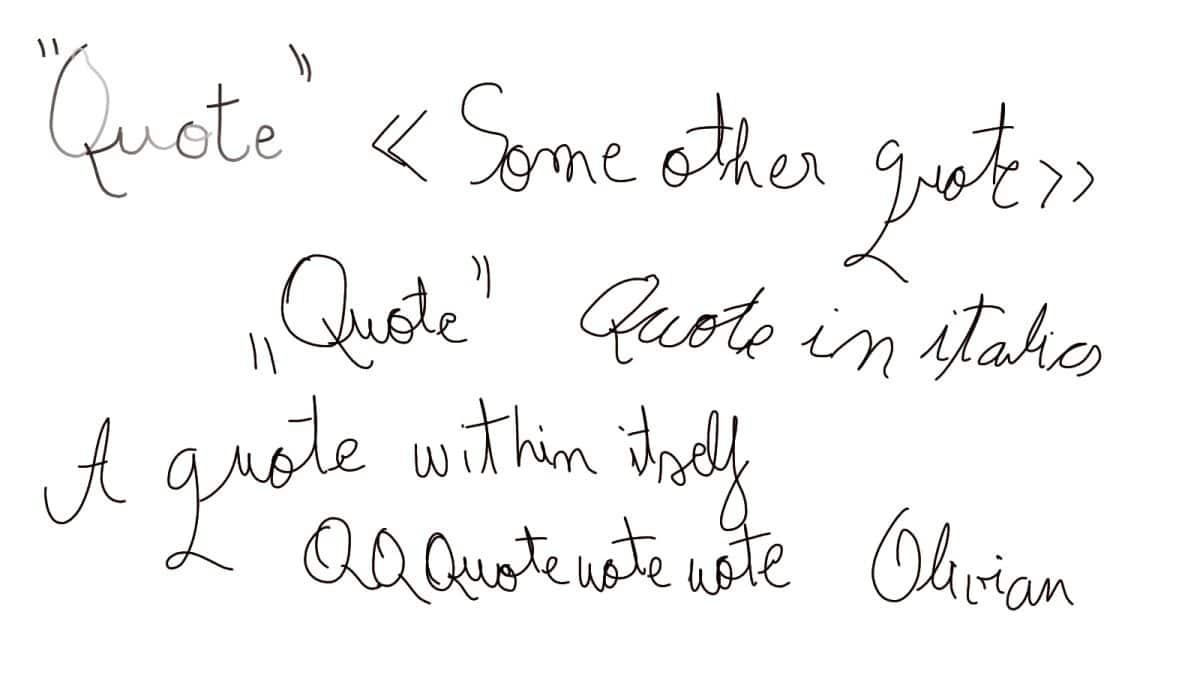 "Quote" << Some other quote >>
„Quote" Quote in italics
A quote within itself
QQQuoteuoteuote Olivian